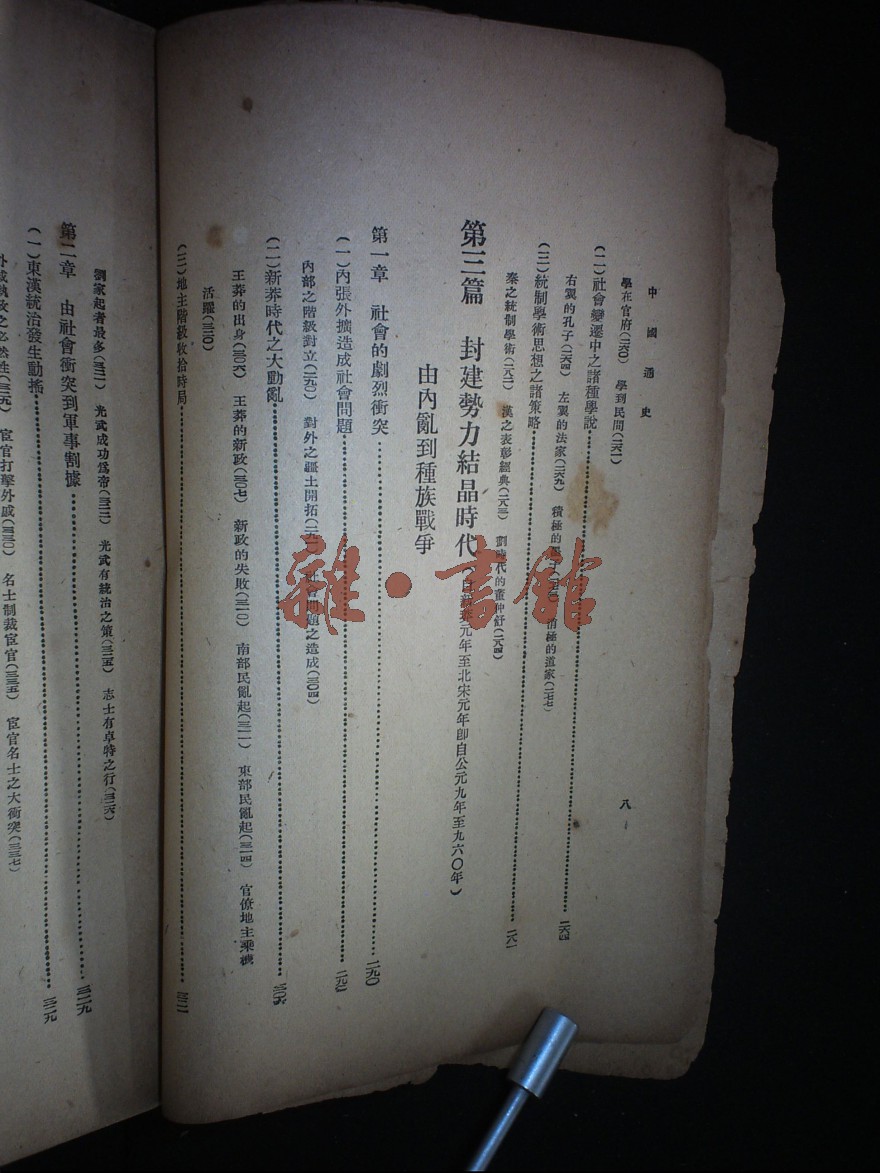 中國通史
八
學在官府(二六〇) 學到民間(二六二)
(二)社會變遷中之諸種學說……二六四
右翼的孔子(二六四) 左翼的法家(二六九) 積極的 消極的道家(二七七)
(三)統制學術思想之諸策略……二八一
秦之統制學術(二八二) 漢之表彰經典(二八三) 劃時代的董仲舒(二八四)
第三篇 封建勢力結晶時代(自新莽元年至北宋元年卽自公元九年至九六〇年)
由內亂到種族戰爭
第一章 社會的劇烈衝突……二九〇
(一)內張外擴造成社會問題……二九〇
內部之階級對立(二九〇) 對外之疆土開拓 社會問題之造成(三〇四)
(二)新莽時代之大動亂……三〇六
王莽的出身(三〇六) 王莽的新政(三〇七) 新政的失敗(三一〇) 南部民亂起(三一一) 東部民亂起(三一四) 官僚地主乘機
活躍(三二〇)
(三)地主階級收拾時局……三二一
劉家起者最多(三二一) 光武成功爲帝(三二二) 光武有統治之策(三二五) 志士有卓特之行(三二六)
第二章 由社會衝突到軍事割據……三二九
(一)東漢統治發生動搖……三二九
外戚執政之必然性(三二九) 宦官打擊外戚(三三〇) 名士制裁宦官(三三五) 宦官名士之大衝突(三三七)
雜·書館